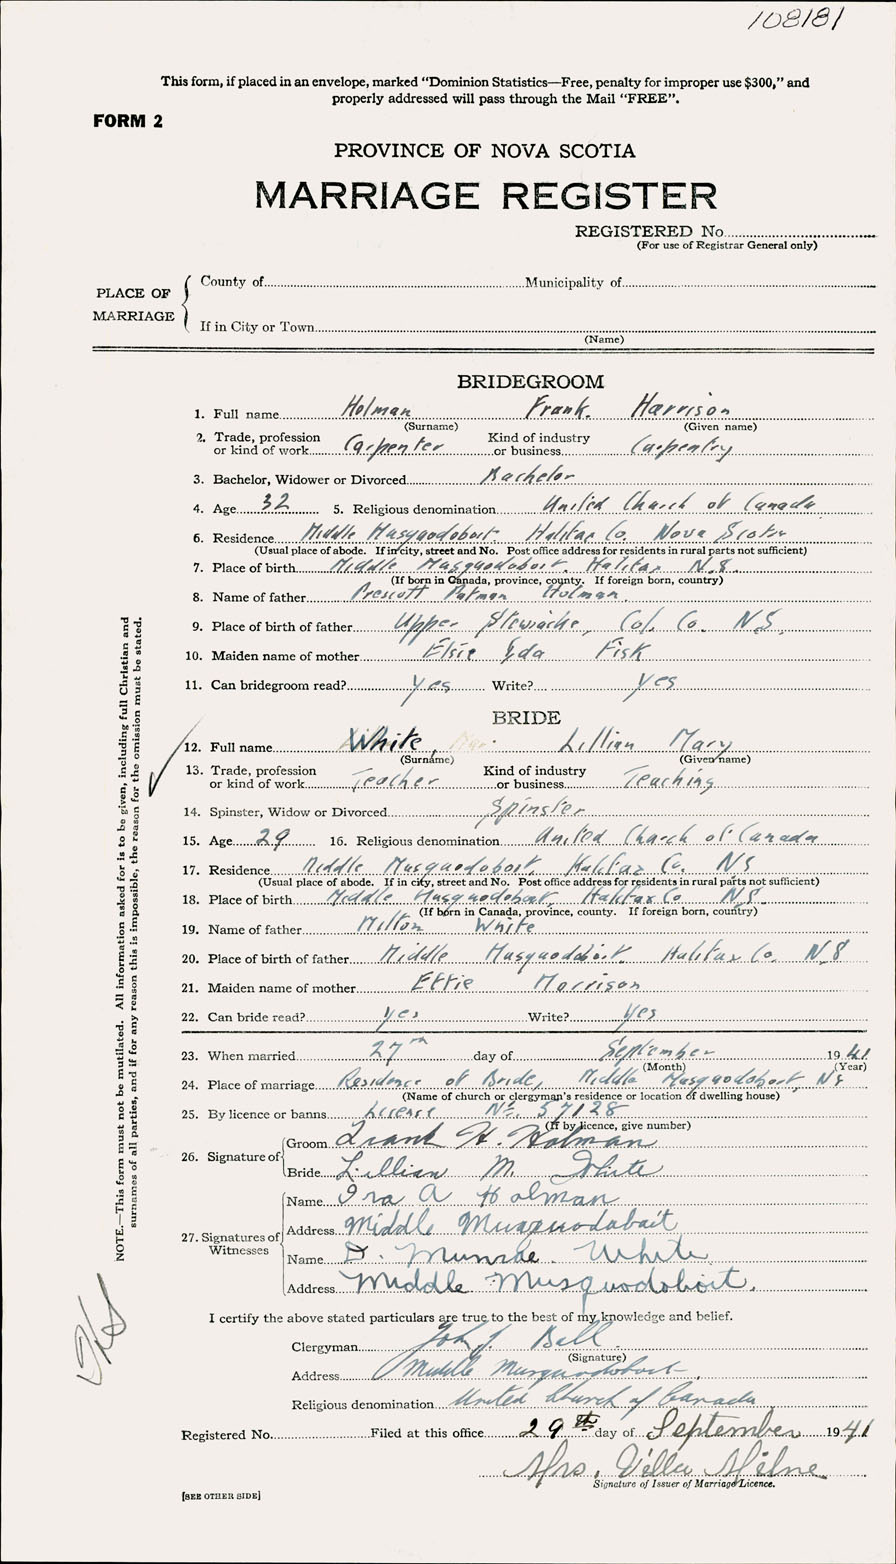 108181
This form, if placed in an envelope, marked “Dominion Statistics—Free, penalty for improper use $300,” and
properly addressed will pass through the Mail “FREE”.
FORM 2
PROVINCE OF NOVA SCOTIA
MARRIAGE REGISTER
REGISTERED No.
(For use of Registrar General only)
PLACE OF MARRIAGE
County of Municipality of
If in City or Town
(Name)
BRIDEGROOM
1. Full name Holman Frank Harrison
(Surname) (Given name)
2. Trade, profession or kind of work Carpenter Kind of industry or business Carpentry
3. Bachelor, Widower or Divorced Bachelor
4. Age 32 5. Religious denomination United Church of Canada
6. Residence Middle Musquodoboit Halifax Co. Nova Scotia
(Usual place of abode. If in city, street and No. Post office address for residents in rural parts not sufficient)
7. Place of birth Middle Musquodoboit Halifax N.S.
(If born in Canada, province, county. If foreign born, country)
8. Name of father Prescott Putman Holman
9. Place of birth of father Upper Stewiacke, Col. Co. N.S.
10. Maiden name of mother Elsie Ida Fisk
11. Can bridegroom read? yes Write? yes
BRIDE
12. Full name White, Lillian Mary
(Surname) (Given name)
13. Trade, profession or kind of work Teacher Kind of industry or business Teaching
14. Spinster, Widow or Divorced Spinster
15. Age 29 16. Religious denomination United Church of Canada
17. Residence Middle Musquodoboit, Halifax Co. NS
(Usual place of abode. If in city, street and No. Post office address for residents in rural parts not sufficient)
18. Place of birth Middle Musquodoboit, Halifax Co NS.
(If born in Canada, province, county. If foreign born, country)
19. Name of father Milton White
20. Place of birth of father Middle Musquodoboit Halifax Co. N.S
21. Maiden name of mother Effie Morrison
22. Can bride read? yes Write? yes
23. When married 27th day of September 1941
(Month) (Year)
24. Place of marriage Residence of Bride, Middle Musquodoboit, NS
(Name of church or clergyman's residence or location of dwelling house)
25. By licence or banns Licence No. 57128
(If by licence, give number)
26. Signature of Groom Frank H. Holman
Bride Lillian M. White
27. Signatures of Witnesses Name Ira A Holman
Address Middle Musquodoboit
Name D. Munroe White
Address Middle Musquodoboit.
I certify the above stated particulars are true to the best of my knowledge and belief.
Clergyman John J. Bell
(Signature)
Address Middle Musquodoboit
Religious denomination United Church of Canada
Registered No. Filed at this office 29th day of September 1941
Mrs. Villa Milne
Signature of Issuer of Marriage Licence.
[SEE OTHER SIDE]
NOTE.—This form must not be mutilated. All information asked for is to be given, including full Christian and
surnames of all parties, and if for any reason this is impossible, the reason for the omission must be stated.